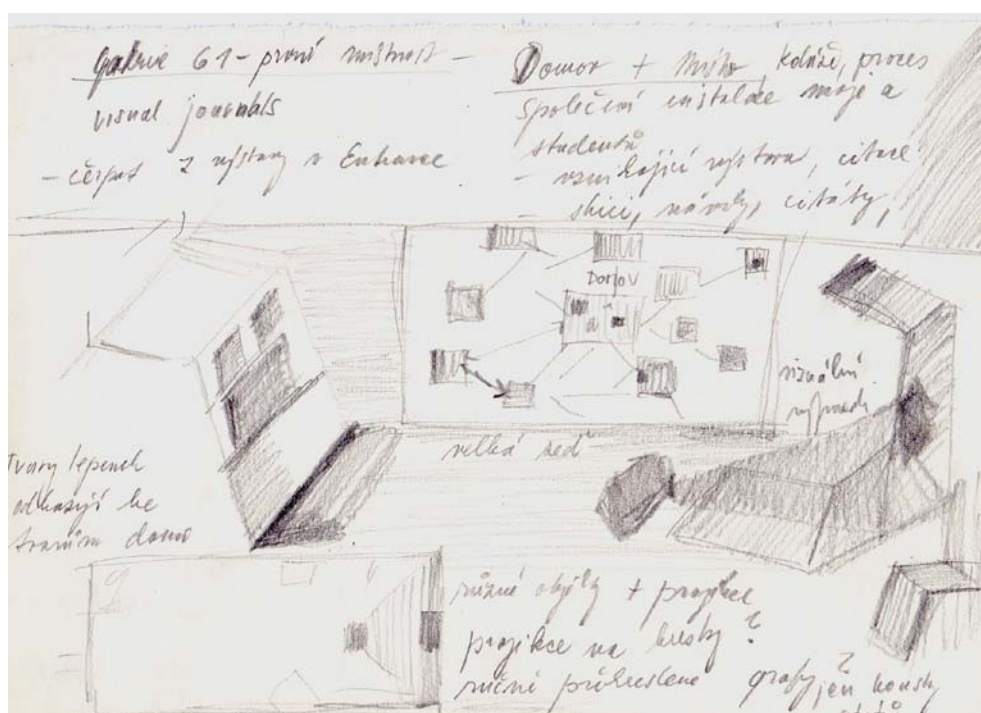 Galerie G1 – první místnost –
visual journals
– čerpat z výstavy v Entrance
Domov + Místo, koláže, proces
společení instalace moje a
studentů
– vznikající výstava, citace
– skici, návody, citáty,
Domov
a
vizuální
velká zeď
Tvary lepenek
odkazují ke
tvarům domů
různé objekty + projekce
projikce na kresby ?
ručně přikreslené
?
grafy jen kousky